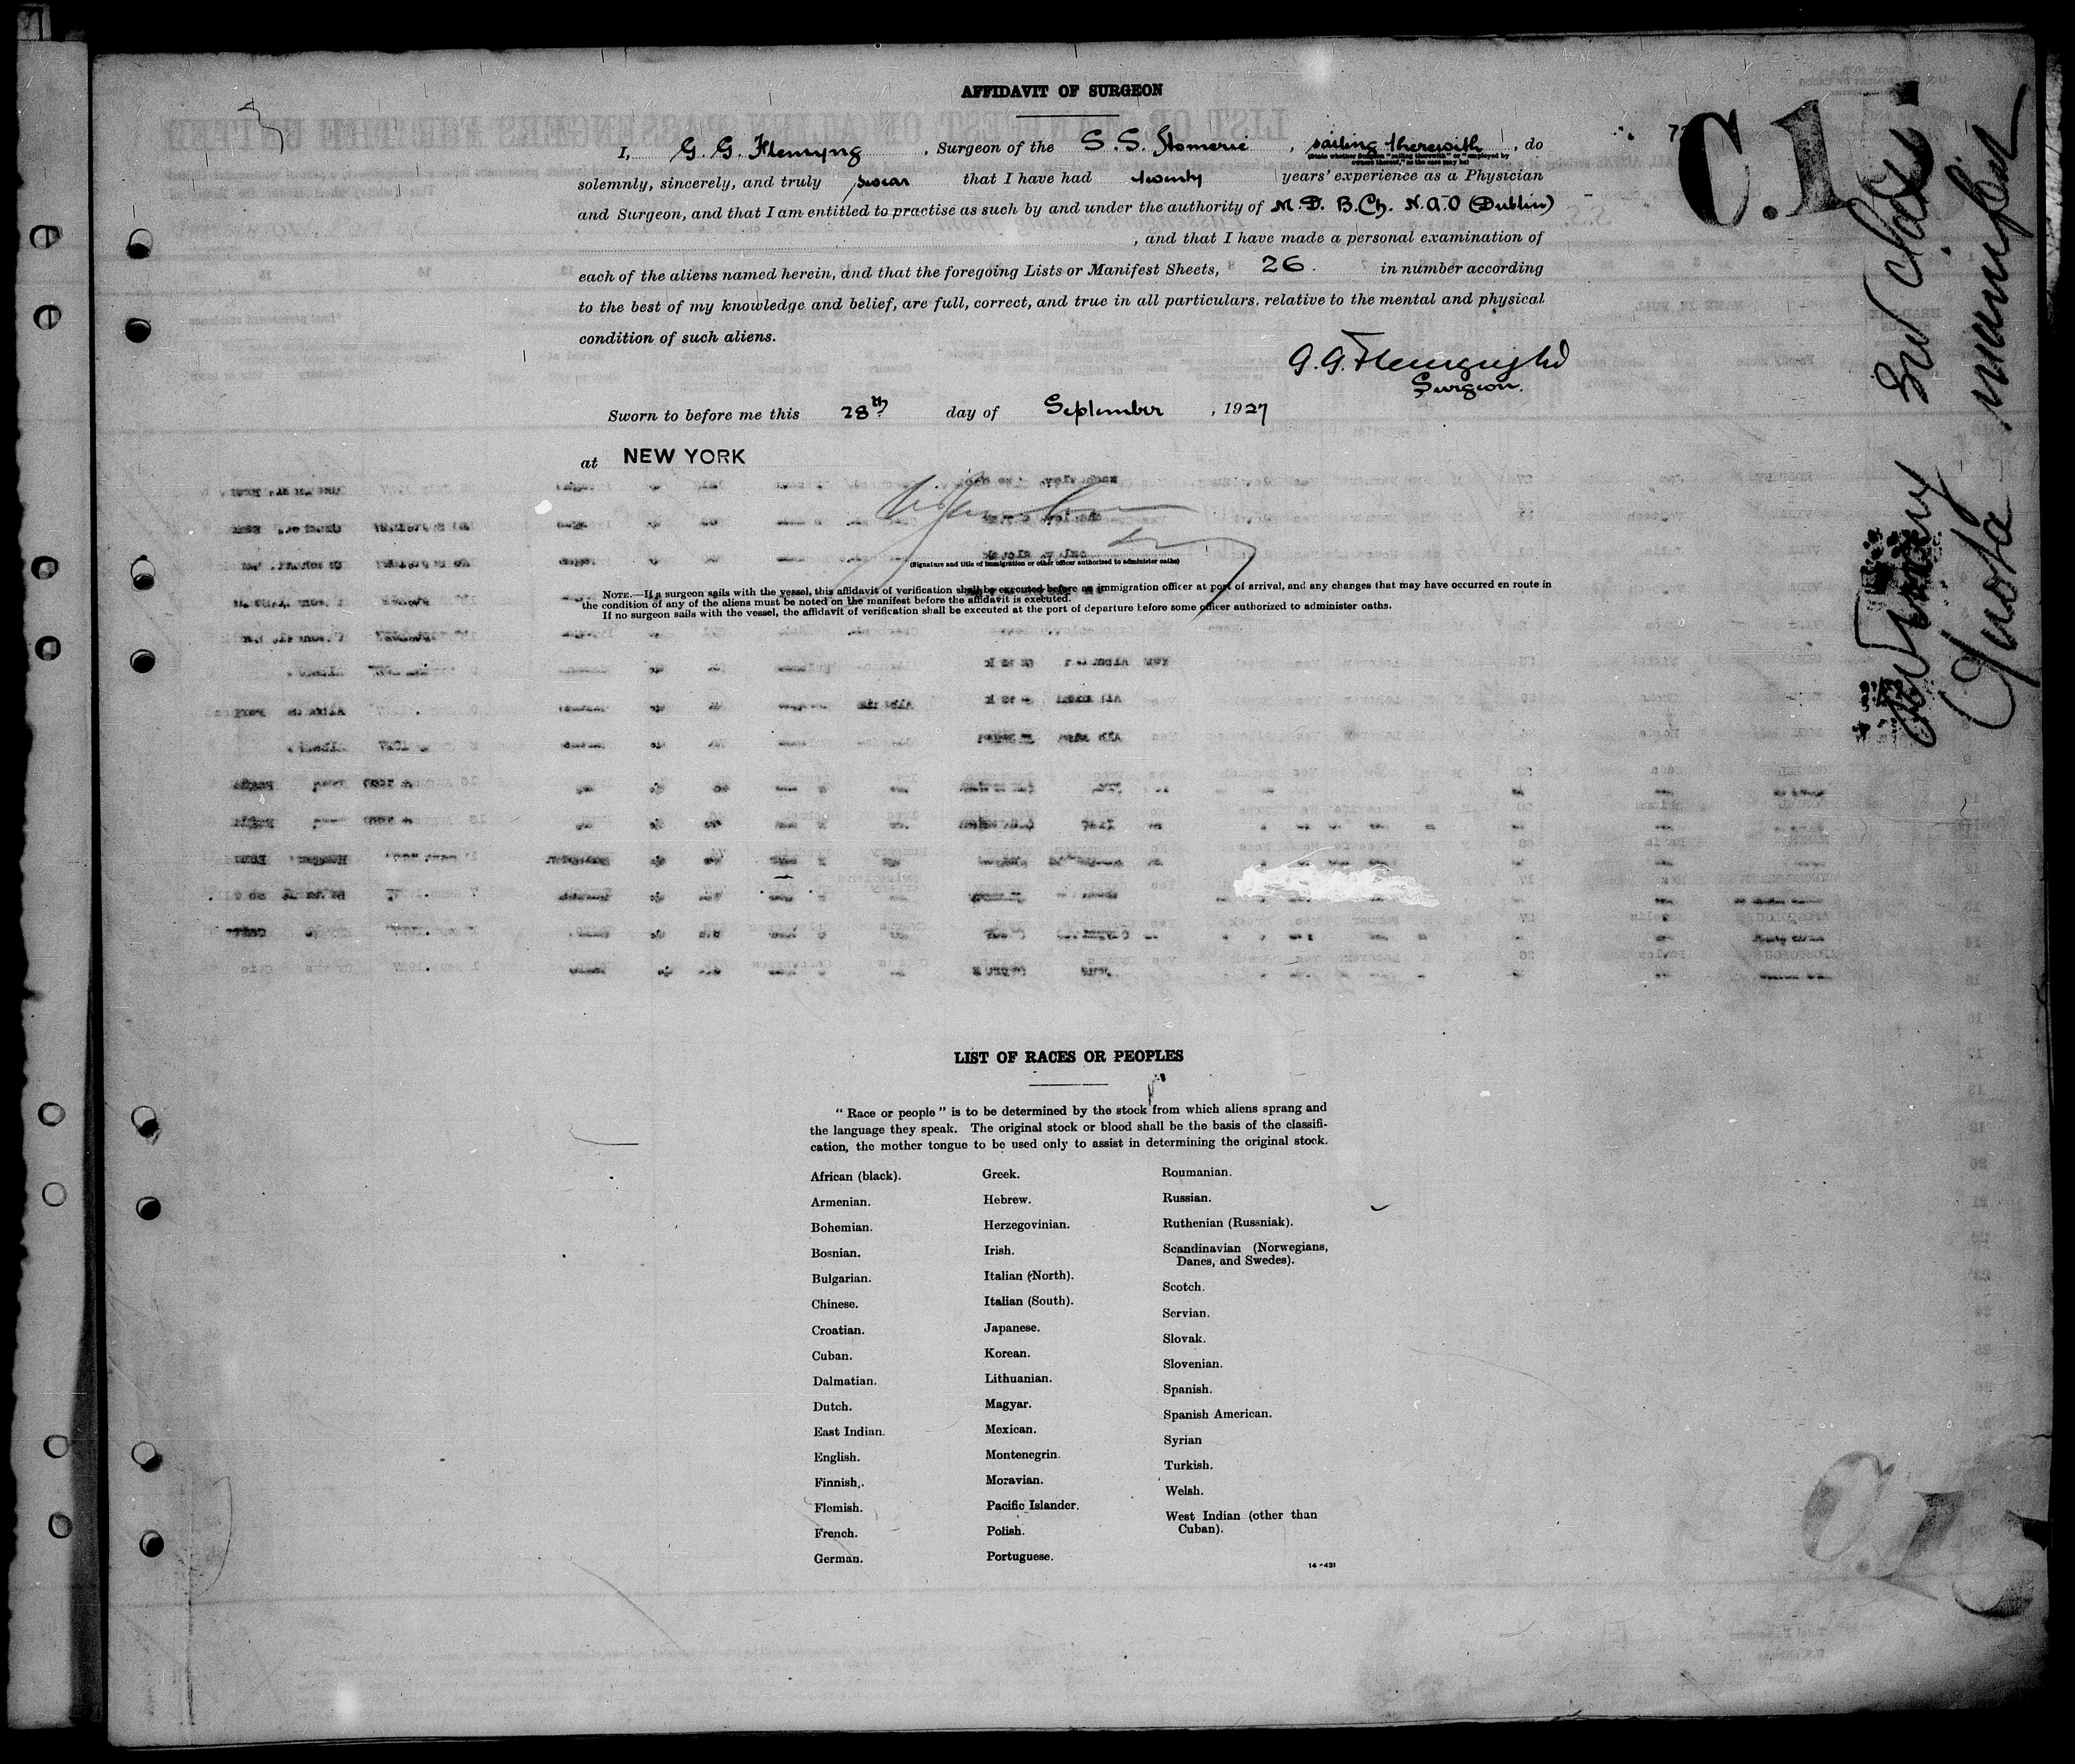 AFFIDAVIT OF SURGEON
I, G. G. Flemyng , Surgeon of the S.S. Homeric , sailing therewith , do
(State whether Surgeon "sailing therewith" or "employed by
owners thereof," as the case may be)
solemnly, sincerely, and truly swear that I have had twenty years' experience as a Physician
and Surgeon, and that I am entitled to practise as such by and under the authority of M.D. B.Ch. N.A.O (Dublin)
, and that I have made a personal examination of
each of the aliens named herein, and that the foregoing Lists or Manifest Sheets, 26. in number according
to the best of my knowledge and belief, are full, correct, and true in all particulars. relative to the mental and physical
condition of such aliens.
G. G. Flemyng
Surgeon.
Sworn to before me this 28th day of September , 1927
at NEW YORK
(Signature and title of immigration or other officer authorized to administer oaths)
NOTE.—If a surgeon sails with the vessel, this affidavit of verification shall be executed before an immigration officer at port of arrival, and any changes that may have occurred en route in
the condition of any of the aliens must be noted on the manifest before the affidavit is executed.
If no surgeon sails with the vessel, the affidavit of verification shall be executed at the port of departure before some officer authorized to administer oaths.
C.15
3rd Class
manifest
Quota
LIST OF RACES OR PEOPLES
"Race or people" is to be determined by the stock from which aliens sprang and
the language they speak. The original stock or blood shall be the basis of the classifi-
cation, the mother tongue to be used only to assist in determining the original stock.
African (black).
Armenian.
Bohemian.
Bosnian.
Bulgarian.
Chinese.
Croatian.
Cuban.
Dalmatian.
Dutch.
East Indian.
English.
Finnish.
Flemish.
French.
German.
Greek.
Hebrew.
Herzegovinian.
Irish.
Italian (North).
Italian (South).
Japanese.
Korean.
Lithuanian.
Magyar.
Mexican.
Montenegrin.
Moravian.
Pacific Islander.
Polish.
Portuguese.
Roumanian.
Russian.
Ruthenian (Russniak).
Scandinavian (Norwegians,
Danes, and Swedes).
Scotch.
Servian.
Slovak.
Slovenian.
Spanish.
Spanish American.
Syrian
Turkish.
Welsh.
West Indian (other than
Cuban).
14-431
C.15